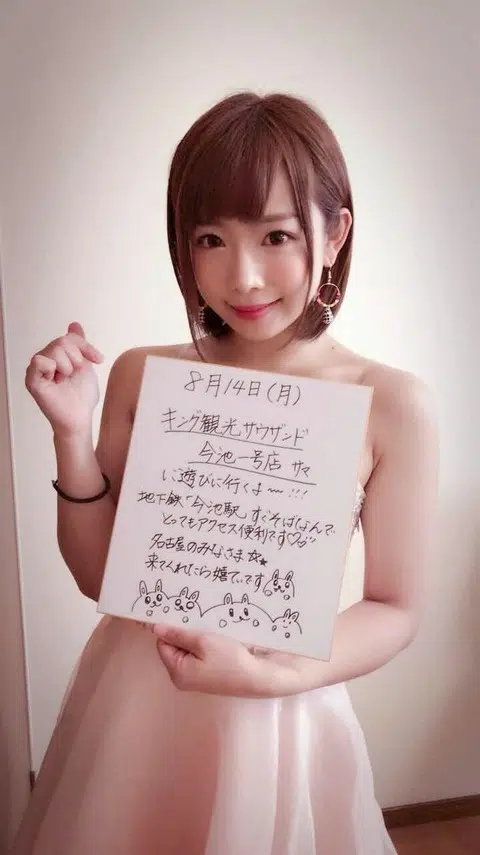 8月14日(月)
キング観光サウザンド
今池一号店 サマ
に遊びに行くよ〜!!!
地下鉄「今池駅」すぐそばなんで
とってもアクセス便利です♡
名古屋のみなさま☆★
来てくれたら嬉しいです